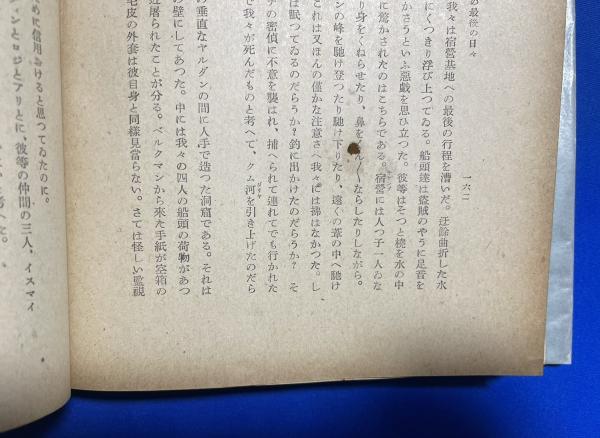 の最後の日々
一六二
我々は宿營基地への最後の行程を漕いだ。迂餘曲折した水
にくつきり浮び上つてゐる。船頭達は盜賊のやうに足音を
かさうといふ惡戲を思ひ立つた。彼等はそつと橈を水の中
に驚かされたのはこちらである。宿營には人つ子一人ゐな
り身をくねらせたり、鼻をくん〱ならしたりしながら。
ンの峰を馳け登つたり馳け下りたり、遠くの葦の中へ馳け
これは又ほんの僅かな注意さへ我々には拂はなかつた。し
は眠つてゐるのだらうか？釣に出かけたのだらうか？　そ
チの密偵に不意を襲はれ、捕へられて連れてでも行かれた
で我々が死んだものと考へて、クム河を引き上げたのだら
の垂直なヤルダンの間に人手で造つた洞窟である。それは
の壁にしてあつた。中には我々の四人の船頭の荷物があつ
近屠られたことが分る。ベルクマンから來た手紙が空箱の
毛皮の外套は彼自身と同樣見當らない。さては怪しい監視
めに信用おけると思つてゐたのに。
インとロジとアリとに、彼等の仲間の三人、イスマイ